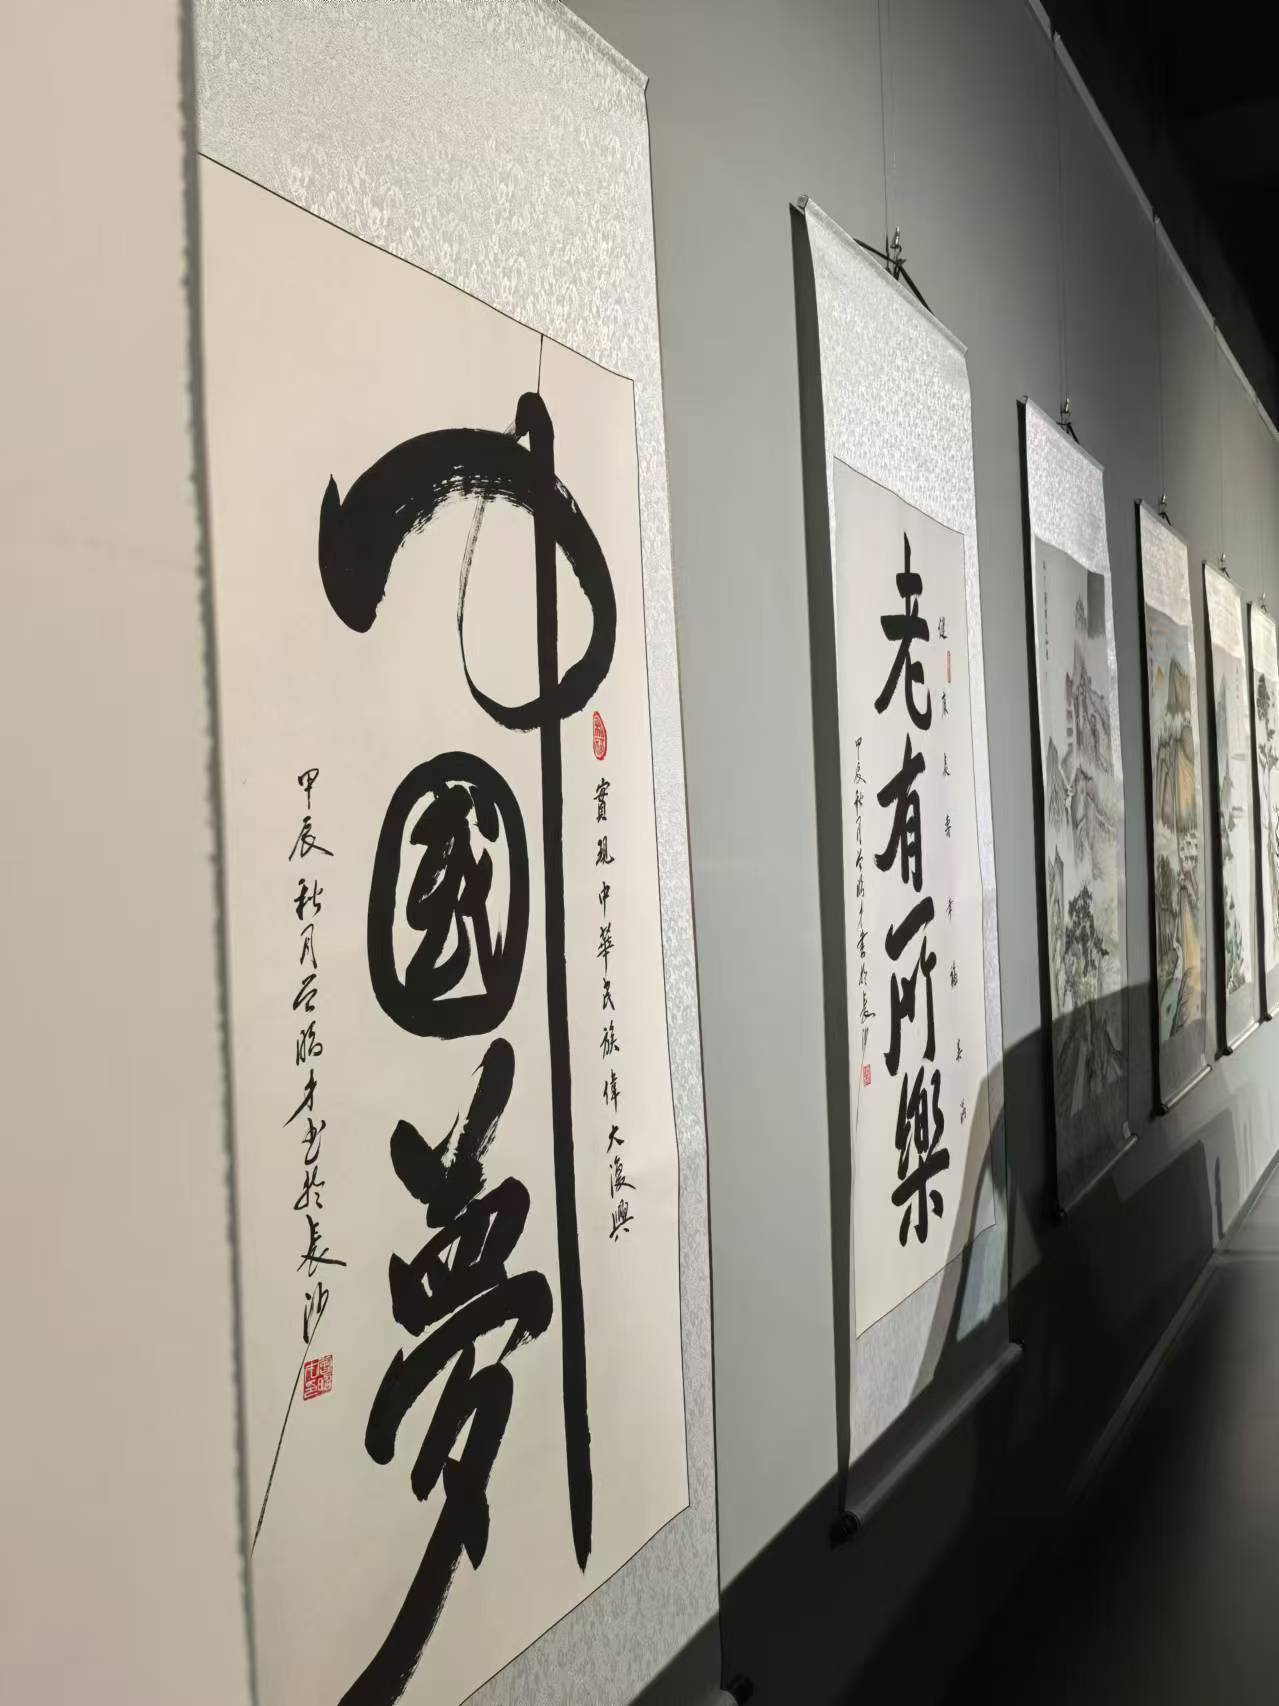 中國夢
實現中華民族偉大復興
甲辰秋月
書於長沙
老有所樂
健康長壽幸福
甲辰秋月
書於長沙